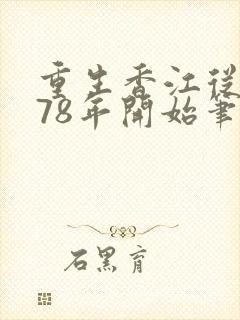 重生香江從
78年開始筆
石黑育